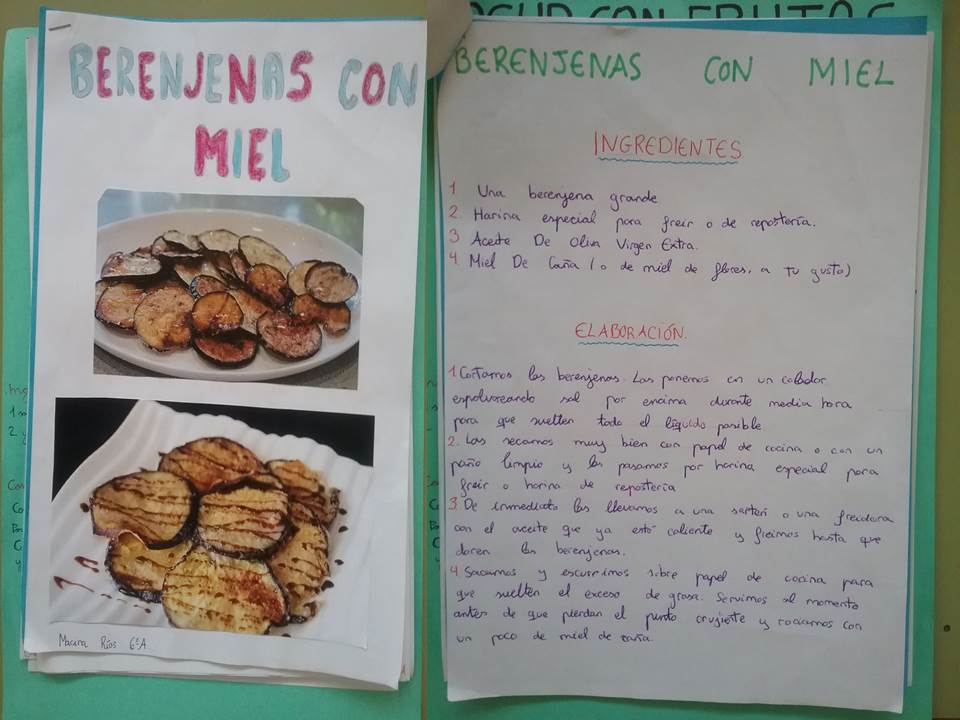 BERENJENAS CON
MIEL
Macura Ríos 6ºA
BERENJENAS CON MIEL
INGREDIENTES
1 Una berenjena grande
2 Harina especial para freir o de repostería.
3 Aceite De Oliva Virgen Extra.
4 Miel De Caña (o de miel de flores, a tu gusto)
ELABORACIÓN.
1 Cortamos las berenjenas. Las ponemos en un colador
espolvoreando sal por encima durante media hora
para que suelten todo el líquido posible
2. Las secamos muy bien con papel de cocina o con un
paño limpio y las pasamos por harina especial para
freir o harina de repostería
3 De inmediato las llevamos a una sartén o una freidora
con el aceite que ya esté caliente y freimos hasta que
doren las berenjenas.
4 Sacamos y escurrimos sobre papel de cocina para
que suelten el exceso de grasa. Servimos al momento
antes de que pierdan el punto crujiente y rociamos con
un poco de miel de caña.
CON FRUTAS